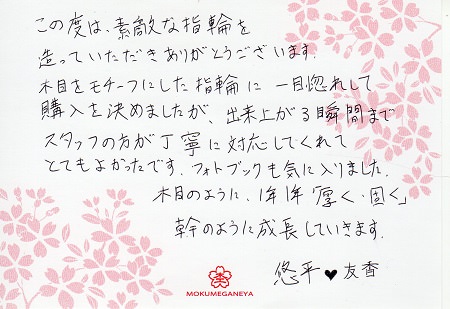 この度は、素敵な指輪を
造っていただきありがとうございます.
木目をモチーフにした指輪に一目惚れして
購入を決めましたが、出来上がる瞬間まで
スタッフの方が丁寧に対応してくれて
とてもよかったです. フォトブックも気に入りました.
木目のように、1年1年「厚く・固く」
幹のように成長していきます.
悠平♥友香
MOKUMEGANEYA